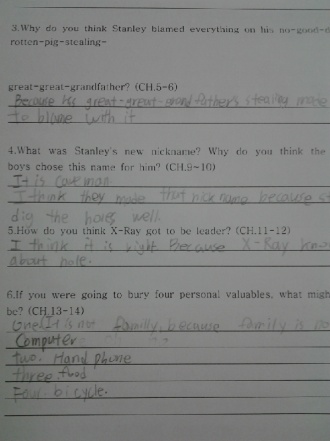 3.Why do you think Stanley blamed everything on his no-good-d
rotten-pig-stealing-
great-great-grandfather? (CH.5-6)
Because his great-great-grand father's stealing made
to blame with it
4.What was Stanley's new nickname? Why do you think the
boys chose this name for him? (CH.9~10)
It is Cave man
I think they make that nick name because st
dig the holes well.
5.How do you think X-Ray got to be leader? (CH.11-12)
I think it is right Because X-Ray know
about hole.
6.If you were going to bury four personal valuables, what migh
be? (CH.13-14)
One. It is not family, because family is no
Computer
two. Hand phone
three. food
Four. bicycle.